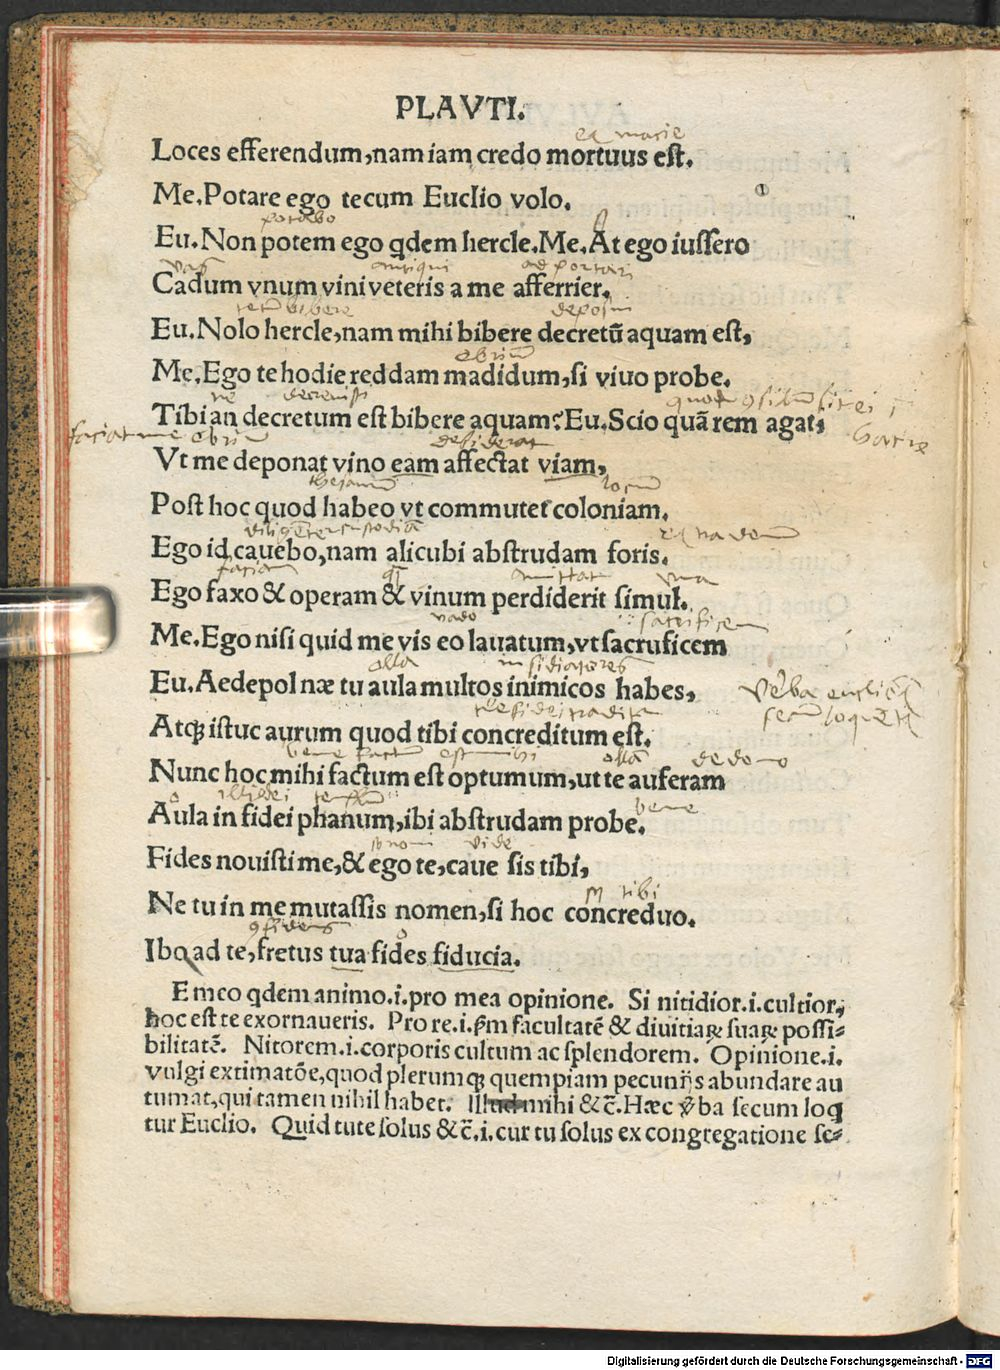 PLAVTI.
ex macie
Loces efferendum,nam iam credo mortuus est.
Me.Potare ego tecum Euclio volo.
potabo
Eu.Non potem ego qdem hercle.Me.At ego iussero
vas antiqui adportari
Cadum vnum vini veteris a me afferrier.
bibere
Eu.Nolo hercle,nam mihi bibere decretū aquam est,
ebriū
Me.Ego te hodie reddam madidum,si viuo probe.
decrevisti
Tibi an decretum est bibere aquam?Eu.Scio quā rem agat,
faciat me ebriū desiderat
Vt me deponat vino eam affectat viam,
locum
Post hoc quod habeo vt commutet coloniam.
diligenter custodiā
Ego id cauebo,nam alicubi abstrudam foris.
faciam amittat vna
Ego faxo & operam & vinum perdiderit simul.
vado sacrificem
Me.Ego nisi quid me vis eo lauatum,vt sacruficem
olla insidiatores
Eu.Aedepol næ tu aula multos inimicos habes,
Verba euclionis
secum loquentis
Atq; istuc aurum quod tibi concreditum est.
bene factum est mihi ollā
Nunc hoc mihi factum est optumum,ut te auferam
o templum bene
Aula in fidei phanum,ibi abstrudam probe.
vide
Fides nouisti me,& ego te,caue sis tibi,
tibi
Ne tu in me mutassis nomen,si hoc concreduo.
confidens
Ibo ad te,fretus tua fides fiducia.
Emeo qdem animo.i.pro mea opinione. Si nitidior.i.cultior,
hoc est te exornaueris. Pro re.i.p̄m facultatē & diuitiaꝝ suaꝝ possi-
bilitatē. Nitorem.i.corporis cultum ac splendorem. Opinione.i.
vulgi extimatōe,quod plerumq; quempiam pecunijs abundare au
tumat,qui tamen nihil habet. Illud mihi &c̄.Hæc v̄ba secum loq
tur Euclio. Quid tute solus &c̄.i.cur tu solus ex congregatione se-
Digitalisierung gefördert durch die Deutsche Forschungsgemeinschaft - DFG